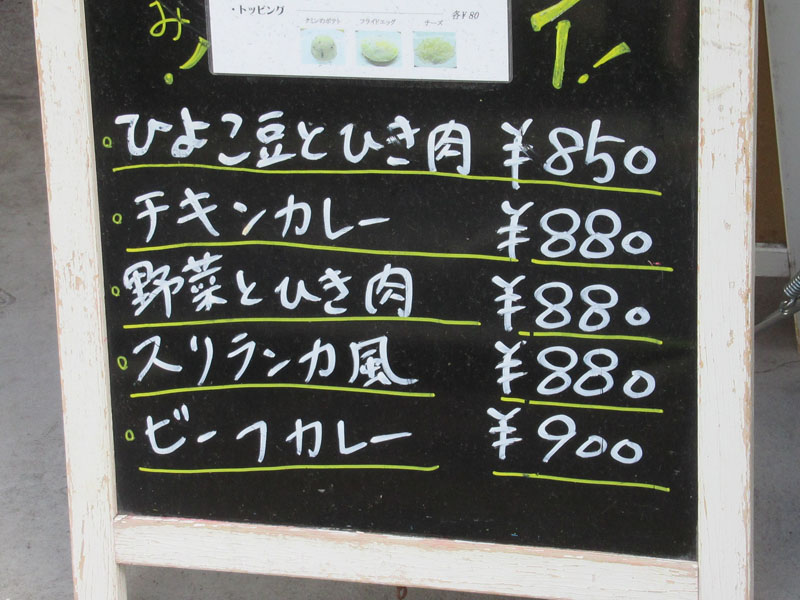 ・トッピング 各¥80
フライドエッグ チーズ
み
イ!
ひよこ豆とひき肉 ¥850
チキンカレー ¥880
野菜とひき肉 ¥880
スリランカ風 ¥880
ビーフカレー ¥900